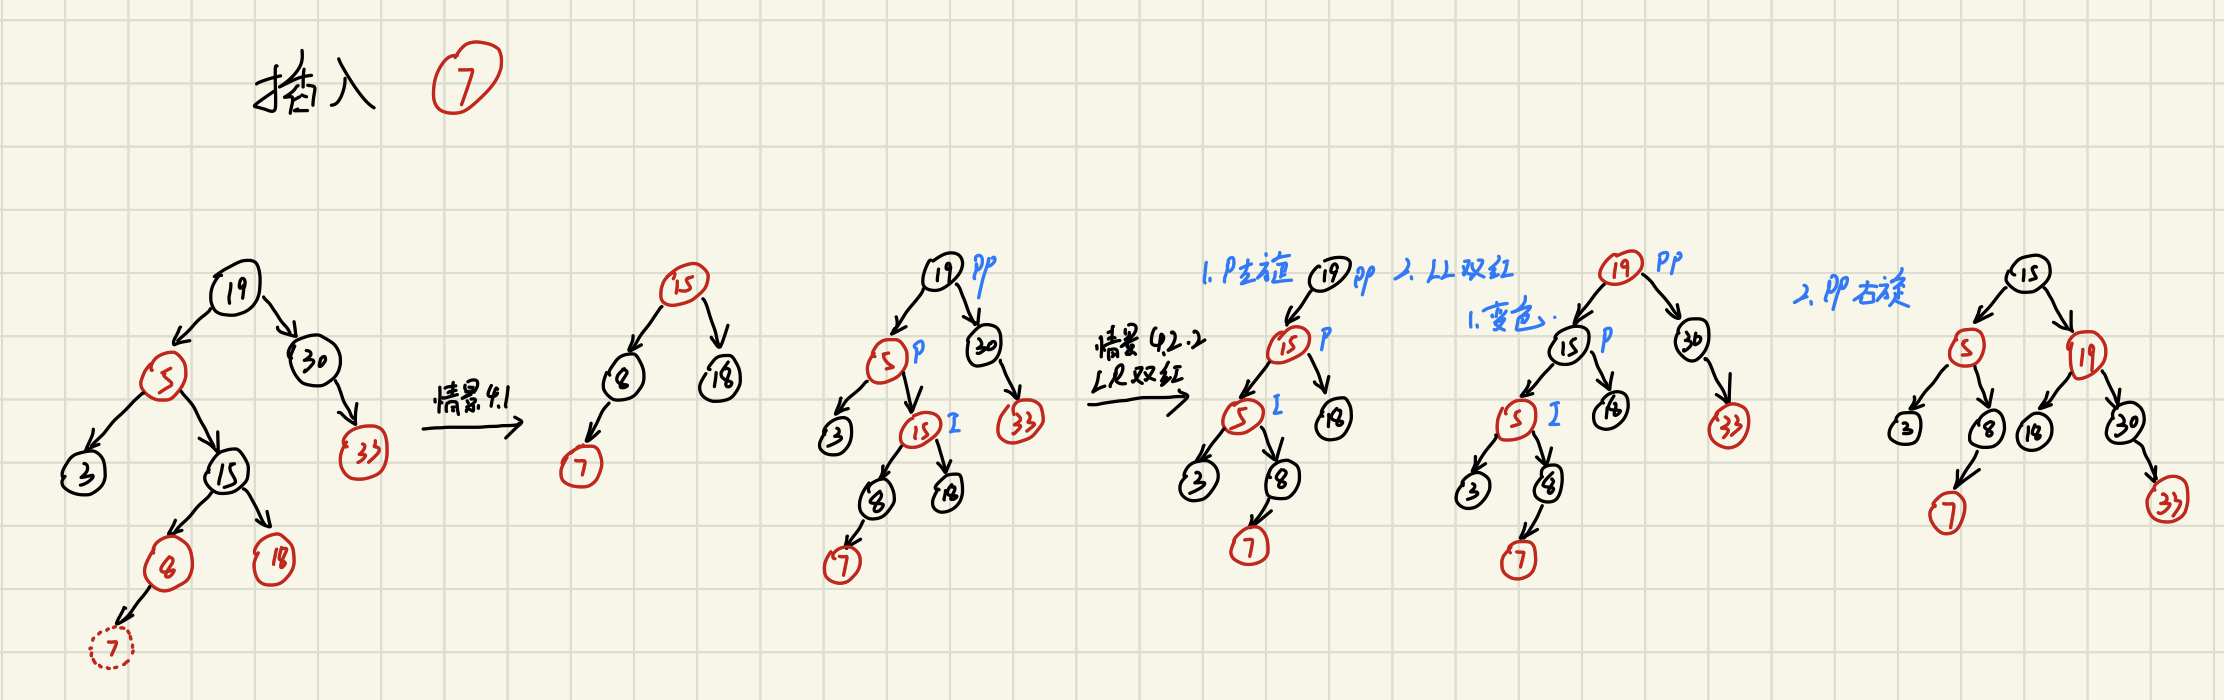 插入 7
19
5
30
3
15
33
8
18
7
情景4.1
15
8
18
7
19 PP
5 P
30
3
15 I
33
8
18
7
情景4.2.2
LR双红
1. P左旋
19 PP
15 P
5 I
18
3
8
7
2. LL双红
1. 变色.
19 PP
15 P
30
5 I
18
33
3
8
7
2. PP右旋
15
5
19
3
8
18
30
7
33